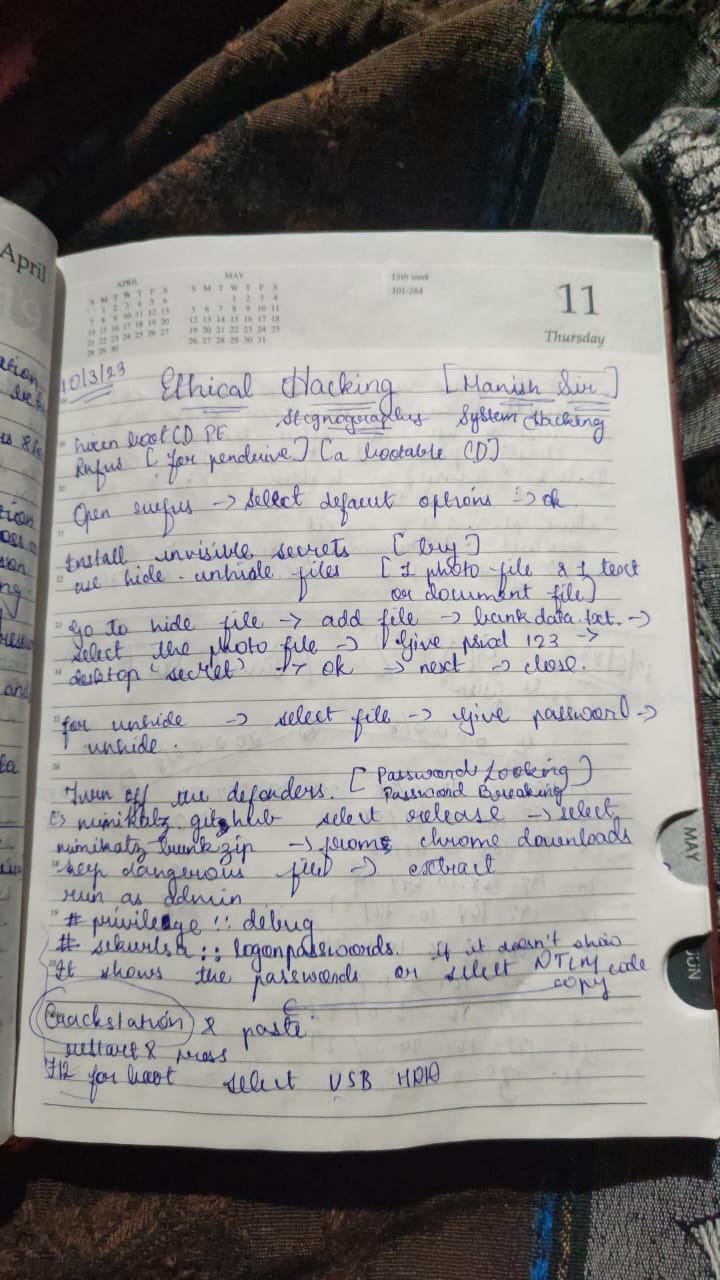 April
19
APRIL
S M T W T F S
1 2 3 4 5 6
7 8 9 10 11 12 13
14 15 16 17 18 19 20
21 22 23 24 25 26 27
28 29 30
MAY
S M T W T F S
1 2 3 4
5 6 7 8 9 10 11
12 13 14 15 16 17 18
19 20 21 22 23 24 25
26 27 28 29 30 31
15th week
101-264
11
Thursday
10/3/23 Ethical Hacking [Manish Sir]
Stegnographys System Hacking
boot CD PE
Rufus [for pendrive] [a bootable CD]
Open rufus → select default options → ok
Install invisible secrets [buy]
use hide - unhide files [1 photo file & 1 text
or document file]
Go to hide file → add file → bank data.txt. →
select the photo file → Give pswd 123 →
desktop "secret" → ok → next → close.
for unhide → select file → Give password →
unhide.
Turn off the defenders. [Password Looking]
Password Breaking
mimikatz github select release → select
mimikatz trunk zip → from chrome downloads
keep dangerous file → extract
run as admin
# privilege :: debug
# sekurlsa :: logonpasswords. If it doesn't show
It shows the passwords or select NTLM code
copy
Crackstation & paste
restart & press
F12 for boot select USB HDD
MAY
JUN